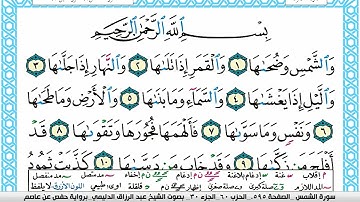 بِسْمِ اللَّهِ الرَّحْمَٰنِ الرَّحِيمِ
وَالشَّمْسِ وَضُحَاهَا ١ وَالْقَمَرِ إِذَا تَلَاهَا ٢ وَالنَّهَارِ إِذَا جَلَّاهَا ٣
وَاللَّيْلِ إِذَا يَغْشَاهَا ٤ وَالسَّمَاءِ وَمَا بَنَاهَا ٥ وَالْأَرْضِ وَمَا طَحَاهَا
٦ وَنَفْسٍ وَمَا سَوَّاهَا ٧ فَأَلْهَمَهَا فُجُورَهَا وَتَقْوَاهَا ٨ قَدْ
أَفْلَحَ مَن زَكَّاهَا ٩ وَقَدْ خَابَ مَن دَسَّاهَا ١٠ كَذَّبَتْ ثَمُودُ
سورة الشمس الصفحة ٥٩٥ الحزب ٦٠ الجزء ٣٠ بصوت الشيخ عبد الرزاق الدليمي رواية حفص عن عاصم